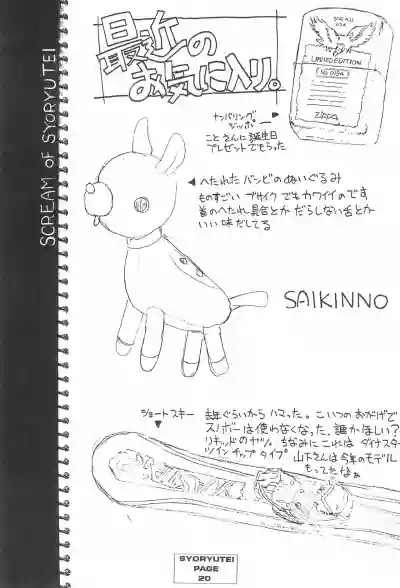 最近の
お気に入り。
SINCE 1932
USA
LIMITED EDITION
ZIPPO
ナンバリング
ジッポー
ことさんに誕生日
プレゼントでもらった
SCREAM OF SYORYUTEI
◀へたれたバンビのぬいぐるみ
ものすごいブサイクでもカワイイのです
首のへたれ具合とかだらしない舌とか
いい味だしてる
SAIKINNO
ショートスキー
▼
去年ぐらいからハマった。こいつのおかげで
スノボーは使わなくなった。誰かほしい?
リキッドのヤツ。ちなみにこれはダイナスター
ツインチップタイプ 山下さんは今年のモデル
もってたなぁ
SYORYUTEI
PAGE
20